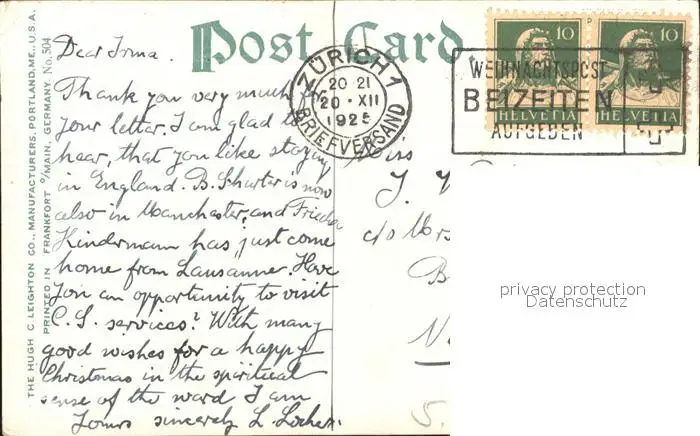 THE HUGH C. LEIGHTON CO., MANUFACTURERS, PORTLAND, ME., U.S.A.
PRINTED IN FRANKFORT o/MAIN, GERMANY. No. 504
Post Card.
Dear Irma.
Thank you very much for
your letter. I am glad to
hear, that you like staying
in England. B. Sharter is now
also in Manchester, and Frieda
Kindermann has just come
home from Lausanne. Have
you an opportunity to visit
C. S. services? With many
good wishes for a happy
Christmas in the spiritual
sense of the word I am
Yours sincerely L. Locher.
ZÜRICH 1
20-21
20·XII
1925
BRIEFVERSAND
WEIHNACHTSPOST
BEIZEITEN
AUFGEBEN
10
HELVETIA
10
HELVETIA
Miss
J.
c/o Mrs
B
S.
privacy protection
Datenschutz